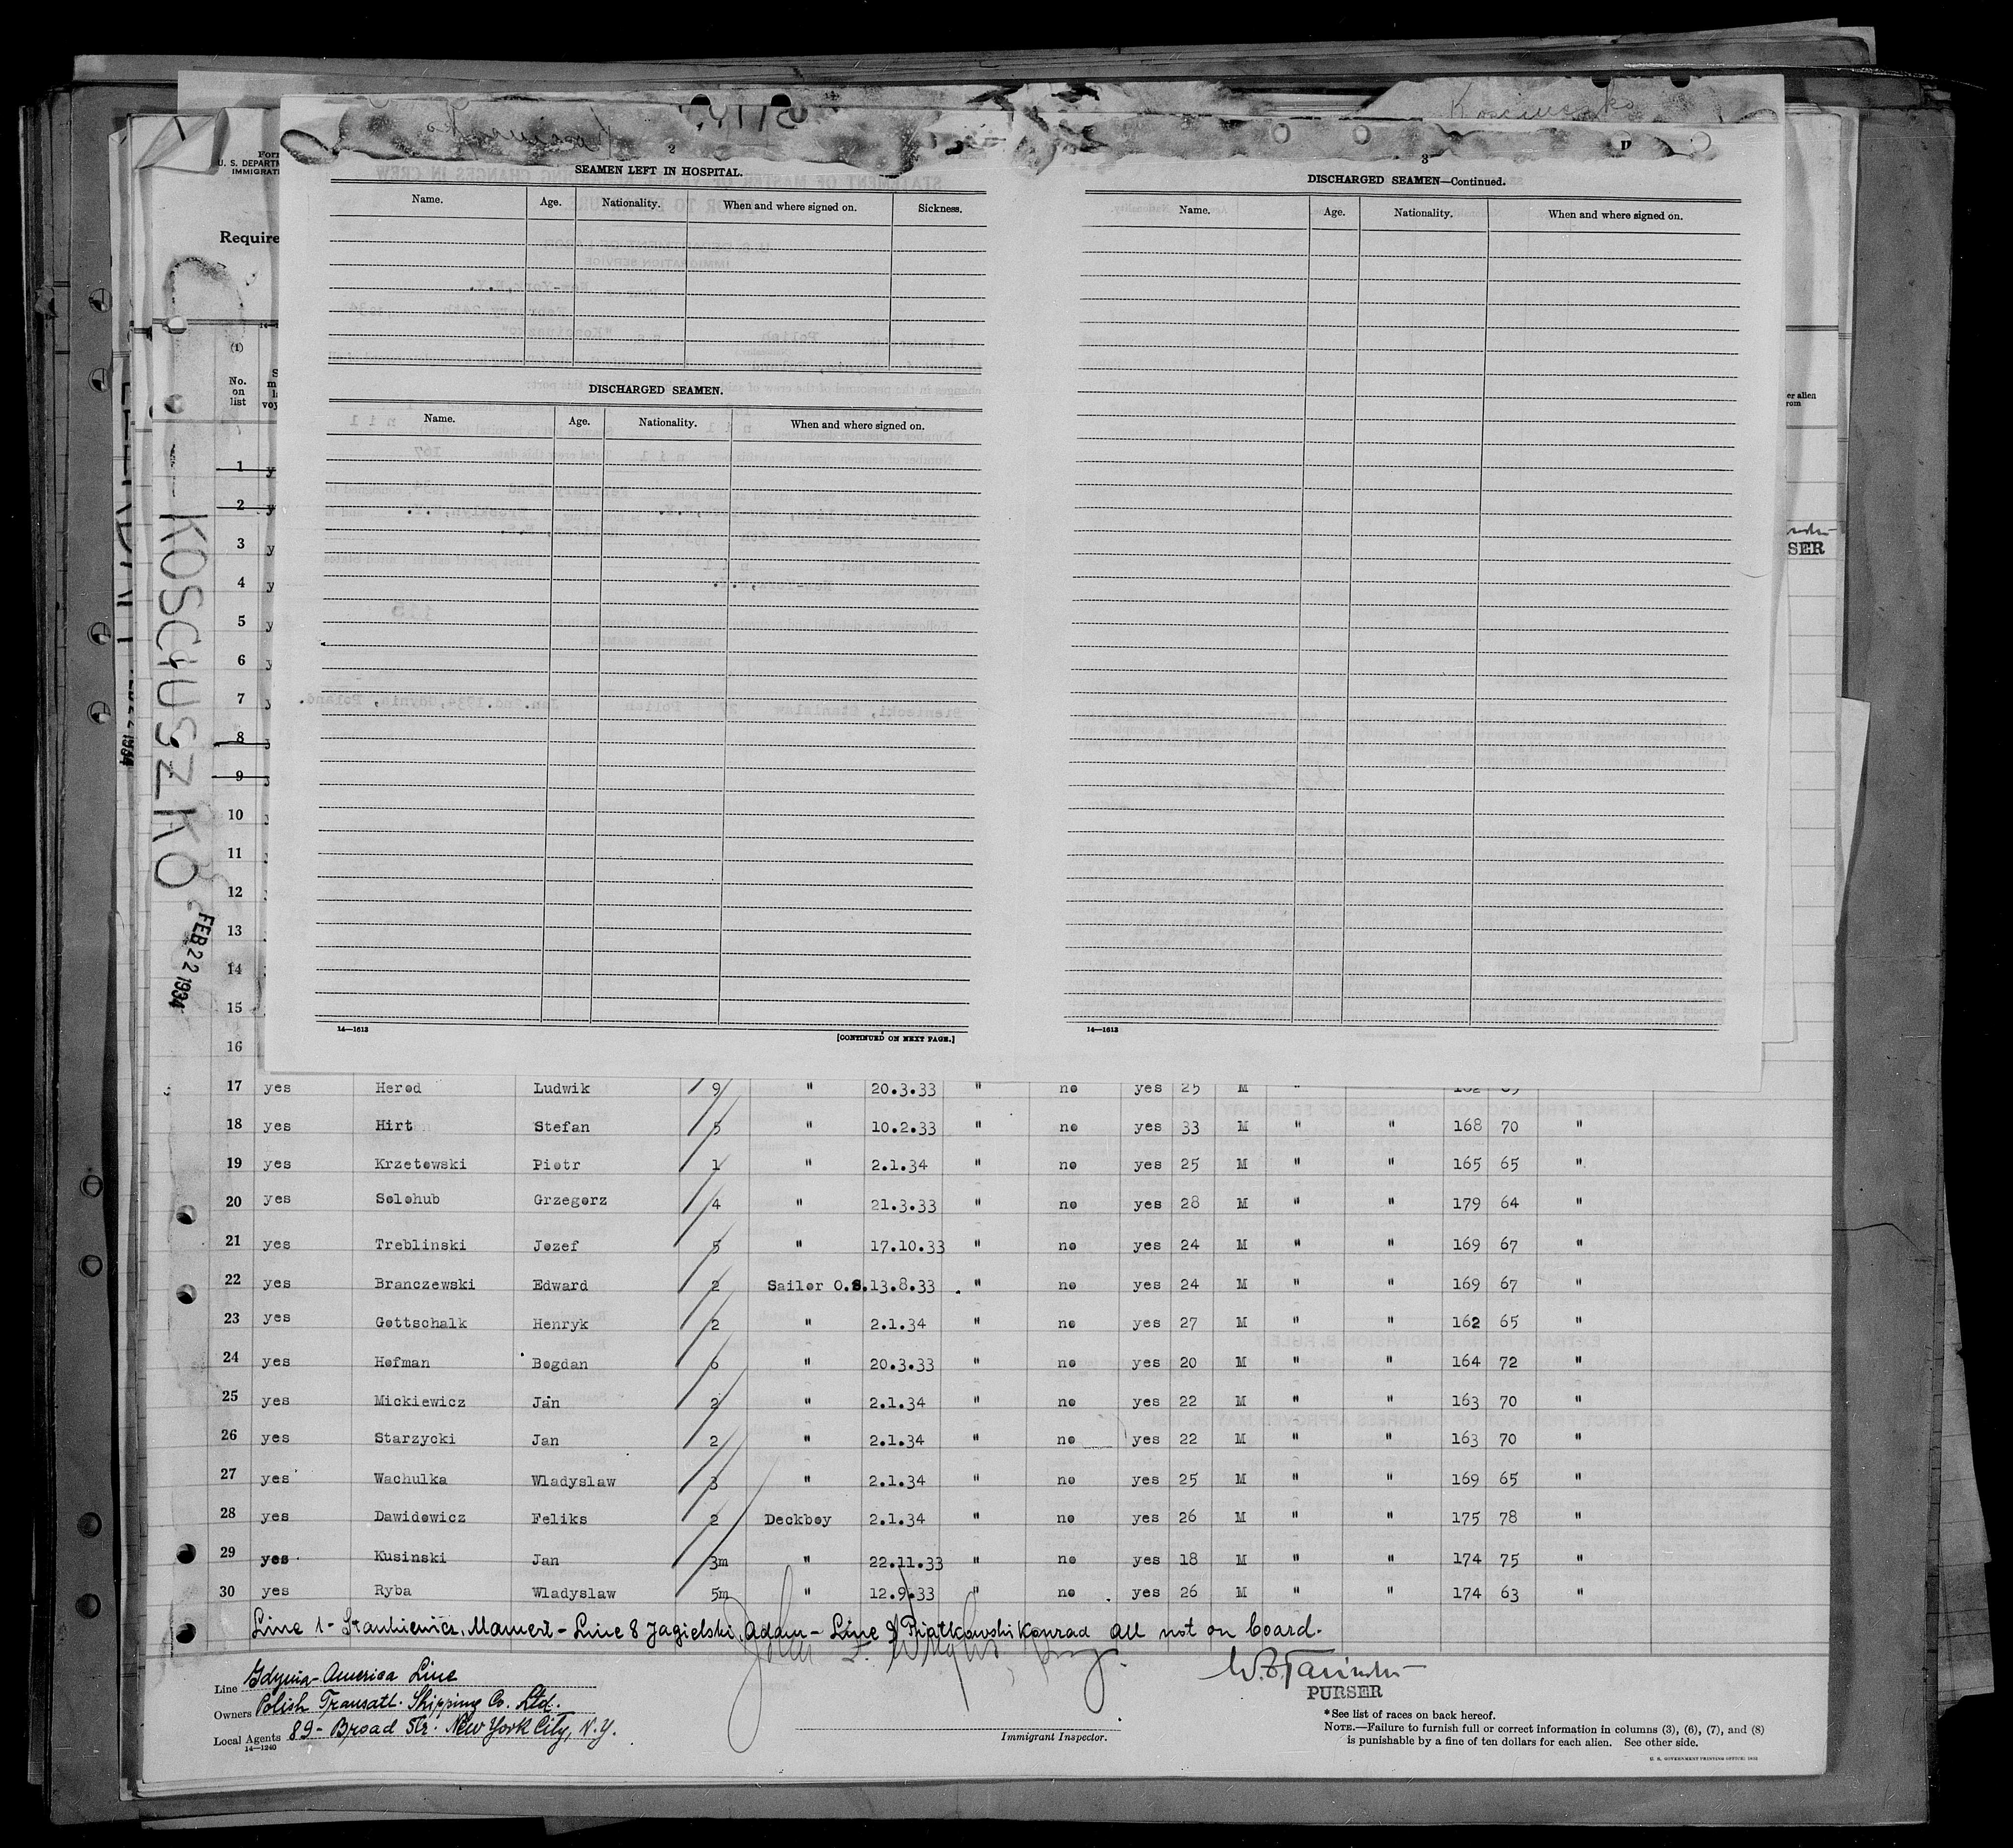 Kosciuszko
2
SEAMEN LEFT IN HOSPITAL.
Name. Age. Nationality. When and where signed on. Sickness.
DISCHARGED SEAMEN.
Name. Age. Nationality. When and where signed on.
14—1613
[CONTINUED ON NEXT PAGE.]
3
DISCHARGED SEAMEN—Continued.
Name. Age. Nationality. When and where signed on.
14—1613
U. S. DEPARTM
IMMIGRAT
Require
(1)
No.
on
list
er alien
rom
SER
KOSCIUSZKO
FEB 22 1934
1 y
2 y
3 y
4 y
5 y
6 y
7 y
8
9
10
11
12
13
14
15
16
17 yes Herod Ludwik 9 " 20.3.33 " no yes 25 M "
18 yes Hirt Stefan 5 " 10.2.33 " no yes 33 M " " 168 70 "
19 yes Krzetowski Piotr 1 " 2.1.34 " no yes 25 M " " 165 65 "
20 yes Solohub Grzegorz 4 " 21.3.33 " no yes 28 M " " 179 64 "
21 yes Treblinski Jozef 5 " 17.10.33 " no yes 24 M " " 169 67 "
22 yes Branczewski Edward 2 Sailor O.S. 13.8.33 " no yes 24 M " " 169 67 "
23 yes Gottschalk Henryk 2 " 2.1.34 " no yes 27 M " " 162 65 "
24 yes Hofman Bogdan 6 " 20.3.33 " no yes 20 M " " 164 72 "
25 yes Mickiewicz Jan 2 " 2.1.34 " no yes 22 M " " 163 70 "
26 yes Starzycki Jan 2 " 2.1.34 " no yes 22 M " " 163 70 "
27 yes Wachulka Wladyslaw 3 " 2.1.34 " no yes 25 M " " 169 65 "
28 yes Dawidowicz Feliks 2 Deckboy 2.1.34 " no yes 26 M " " 175 78 "
29 yes Kusinski Jan 3m " 22.11.33 " no yes 18 M " " 174 75 "
30 yes Ryba Wladyslaw 5m " 12.9.33 " no yes 26 M " " 174 63 "
Line 1 - Stankiewicz, Mamert - Line 8 Jagielski, Adam - Line 9 Piatkowski Konrad all not on board.
Line Gdynia-America Line
Owners Polish Transatl. Shipping Co. Ltd.
Local Agents 89 - Broad Str. New York City, N.Y.
14—1240
Immigrant Inspector.
PURSER
*See list of races on back hereof.
NOTE.—Failure to furnish full or correct information in columns (3), (6), (7), and (8)
is punishable by a fine of ten dollars for each alien. See other side.